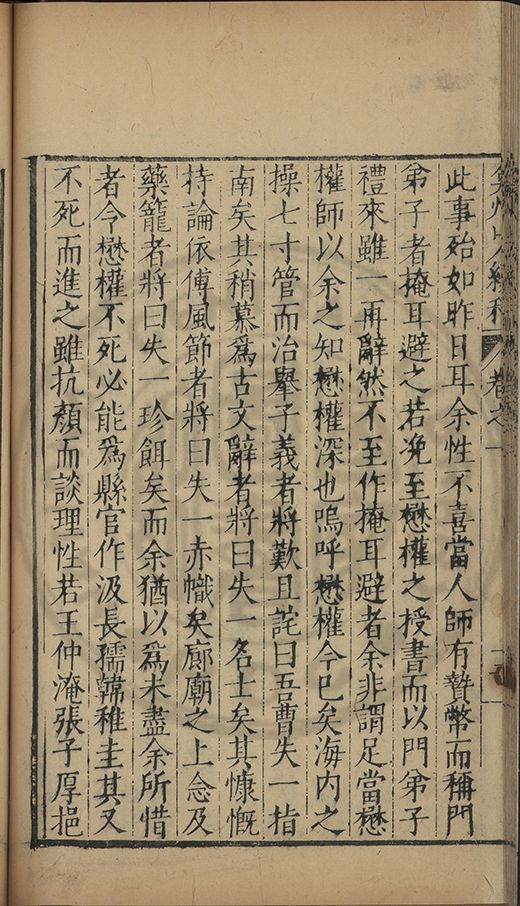 卷之一
此事殆如昨日耳余性不喜當人師有贄幣而稱門
弟子者掩耳避之若浼至懋權之授書而以門弟子
禮來雖一再辭然不至作掩耳避者余非謂足當懋
權師以余之知懋權深也嗚呼懋權今已矣海内之
操七寸管而治舉子義者將歎且詫曰吾曹失一指
南矣其稍慕爲古文辭者將曰失一名士矣其慷慨
持論依傅風節者將曰失一赤幟矣廊廟之上念及
藥籠者將曰失一珍餌矣而余猶以爲未盡余所惜
者令懋權不死必能爲縣官作汲長孺韓稚圭其又
不死而進之雖抗顏而談理性若王仲淹張子厚挹